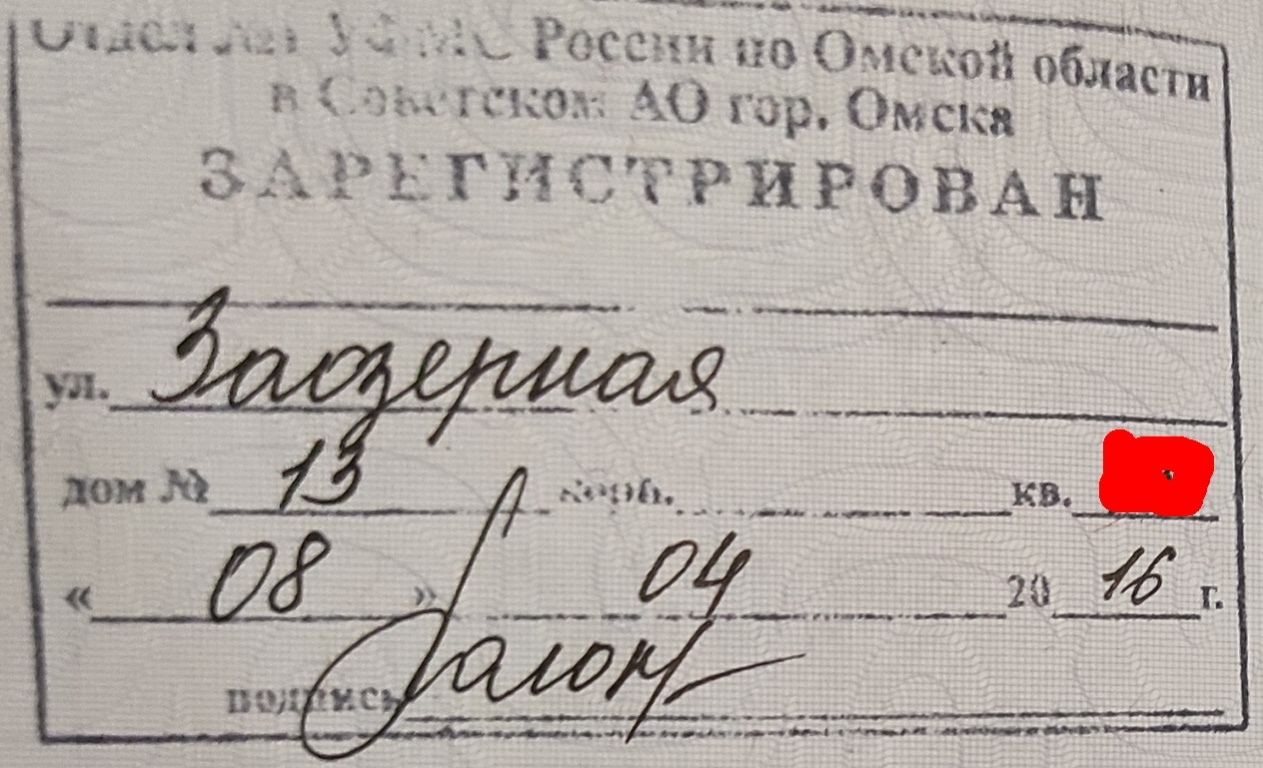 Отдел №1 УФМС России по Омской области
в Советском АО гор. Омска
ЗАРЕГИСТРИРОВАН
ул. Заозерная
дом № 13 корп. кв.
« 08 » 04 20 16 г.
подпись